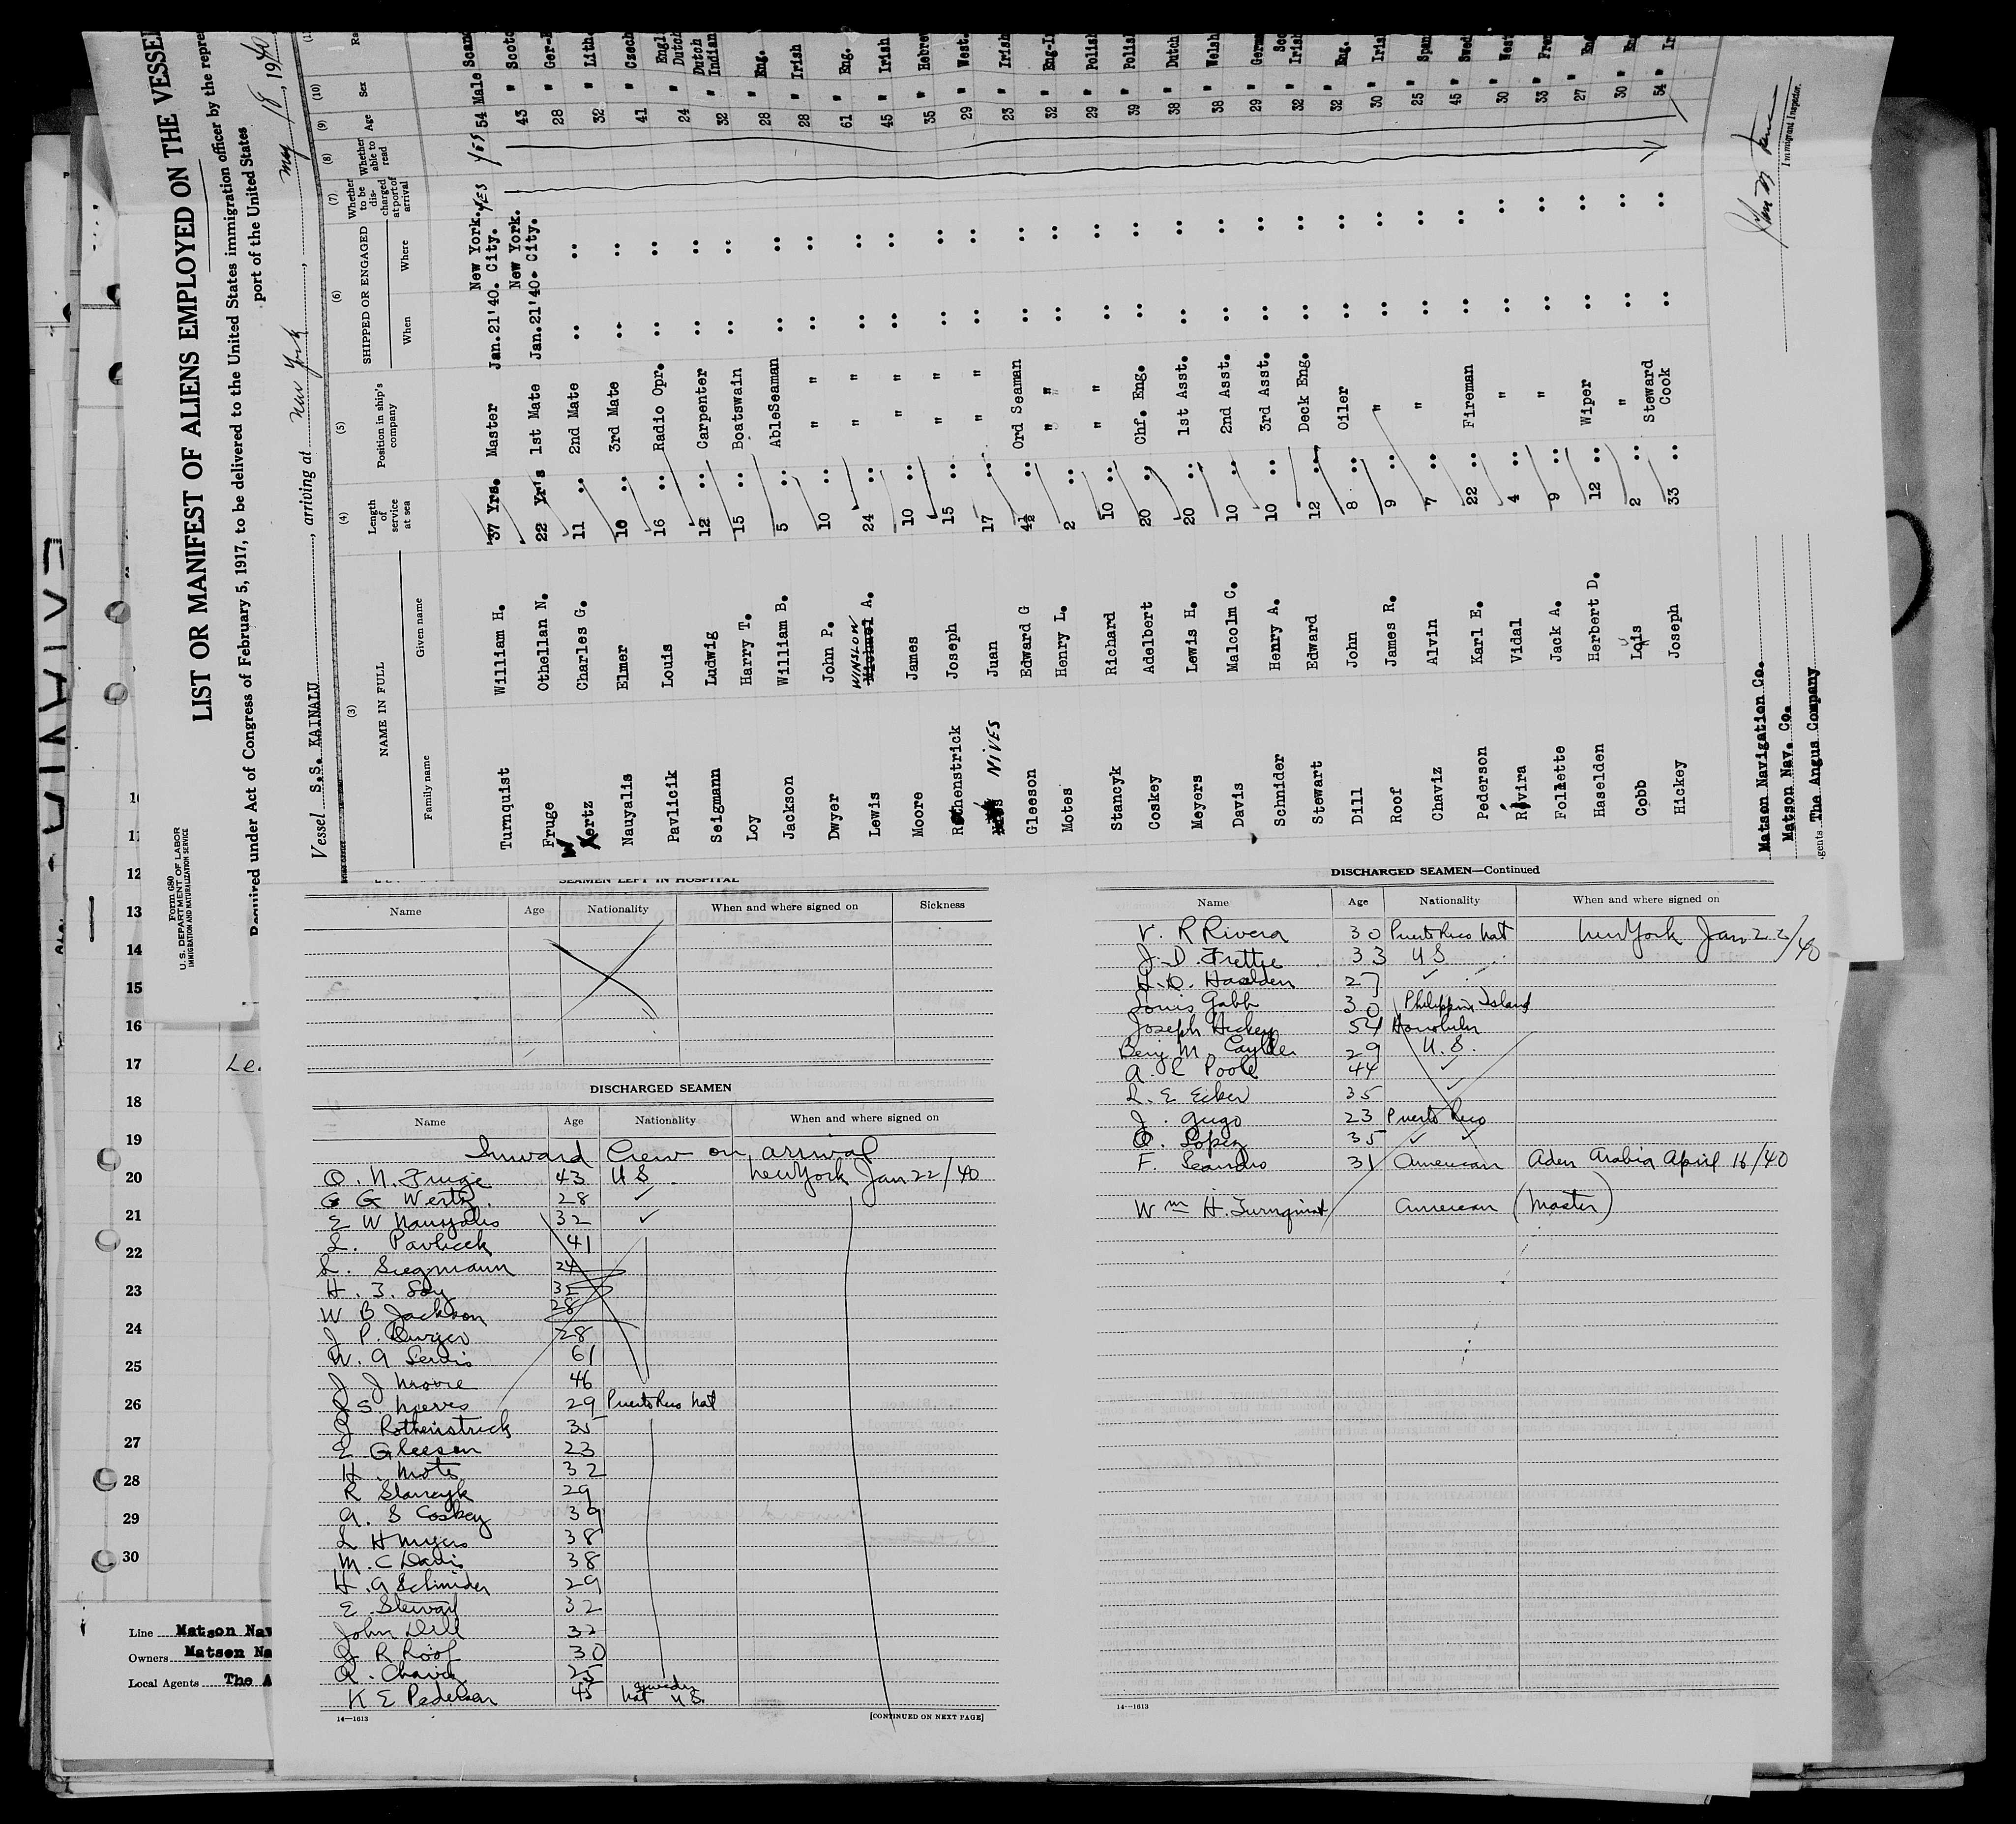 Form 680
U. S. DEPARTMENT OF LABOR
IMMIGRATION AND NATURALIZATION SERVICE
LIST OR MANIFEST OF ALIENS EMPLOYED ON THE VESSEL
Required under Act of Congress of February 5, 1917, to be delivered to the United States immigration officer by the repre
port of the United States
Vessel S.S. KAINALU, arriving at New York, May 18, 1940
(3) (4) (5) (6) (7) (8) (9) (10)
NAME IN FULL Length of service at sea Position in ship's company SHIPPED OR ENGAGED Whether to be discharged at port of arrival Whether able to read Age Sex Ra
Family name Given name When Where
Turnquist William H. 37 Yrs. Master Jan.21'40. New York. City. YES YES 54 Male Scand
Fruge Othellan N. 22 Yr's 1st Mate Jan.21'40. New York. City. 43 " Scotc
Wertz Charles G. 11 .. 2nd Mate .. .. 28 " Ger-
Nauyalis Elmer 10 .. 3rd Mate .. .. 32 " Lith.
Pavlicik Louis 16 .. Radio Opr. .. .. 41 " Czech
Seigmann Ludwig 12 .. Carpenter .. .. 24 " Engl Dutch
Loy Harry T. 15 .. Boatswain .. .. 32 " Dutch Indian
Jackson William B. 5 .. AbleSeaman .. .. 28 " Eng.
Dwyer John P. 10 .. " " .. .. 28 " Irish
Lewis WINSLOW A. 24 .. " " .. .. 61 " Eng.
Moore James 10 .. " " .. .. 45 " Irish
Rothenstrick Joseph 15 .. " " .. .. 35 " Hebre
NIVES Juan 17 .. " " .. .. 29 " West.
Gleeson Edward G 4½ .. Ord Seaman .. .. 23 " Irish
Motes Henry L. 2 .. " " .. .. 32 " Eng-I
Stancyk Richard 10 .. " .. .. 29 " Polis
Coskey Adelbert 20 .. Chf. Eng. .. .. 39 " Polis
Meyers Lewis H. 20 .. 1st Asst. .. .. 38 " Dutch
Davis Malcolm C. 10 .. 2nd Asst. .. .. 38 " Welsh
Schnider Henry A. 10 .. 3rd Asst. .. .. 29 " Germa
Stewart Edward 12 .. Deck Eng. .. .. 32 " Sco Irish
Dill John 8 .. Oiler .. .. 32 " Eng.
Roof James R. 9 .. " .. .. 30 " Iris
Chaviz Alvin 7 .. " .. .. 25 " Span
Pederson Karl E. 22 .. Fireman .. .. 45 " Swed
Rivira Vidal 4 .. " .. .. 30 " West
Follette Jack A. 9 .. " .. .. 33 " Fren
Haselden Herbert D. 12 .. Wiper .. .. 27 "
Cobb Lois 2 .. " .. .. 30 "
Hickey Joseph 33 .. Steward Cook .. .. 54 " Ir
Matson Navigation Co.
Matson Nav. Co.
gents The Angus Company
Immigrant Inspector.
11
12
13
14
15
16
17
18
19
20
21
22
23
24
25
26
27
28
29
30
Le.
Line Matson Nav
Owners Matson Na
Local Agents The A
SEAMEN LEFT IN HOSPITAL
Name Age Nationality When and where signed on Sickness
DISCHARGED SEAMEN
Name Age Nationality When and where signed on
Inward Crew on arrival
O. N. Fruge 43 U S New York Jan 22/40
G G Wertz 28 ✓
E W Nauyalis 32 ✓
L. Pavlicek 41
L. Siegmann 24
H. T. Loy 32
W B Jackson 28
J P. Dwyer 28
W. A Lewis 61
J J Moore 46
J S. Nieves 29 Puerto Rico Nat
J Rothenstrick 35
E Gleeson 23
H. Mots 32
R Stancyk 29
A. S Coskey 39
L H Myers 38
M. C Davis 38
H. A Schnider 29
E. Stewart 32
John Dill 32
J. R Roof 30
A. Chavez 25
K E Pedersen 45 Sweden Nat U S.
14—1613
[CONTINUED ON NEXT PAGE]
DISCHARGED SEAMEN—Continued
Name Age Nationality When and where signed on
V. R Rivera 30 Puerto Rico Nat New York Jan 22/40
J. D. Frette 33 U S
H. D. Haselden 27 ✓
Louis Gabb 30 Philippine Island
Joseph Hickey 54 Honolulu
Benj M. 29 U. S.
A. C Poole 44 ✓
L. E Ecker 35 ✓
J. Gugo 23 Puerto Rico
O. Lopez 35 ✓ ✓
F. Leandro 31 American Aden Arabia April 16/40
Wm H. Turnquist American (Master)
14—1613